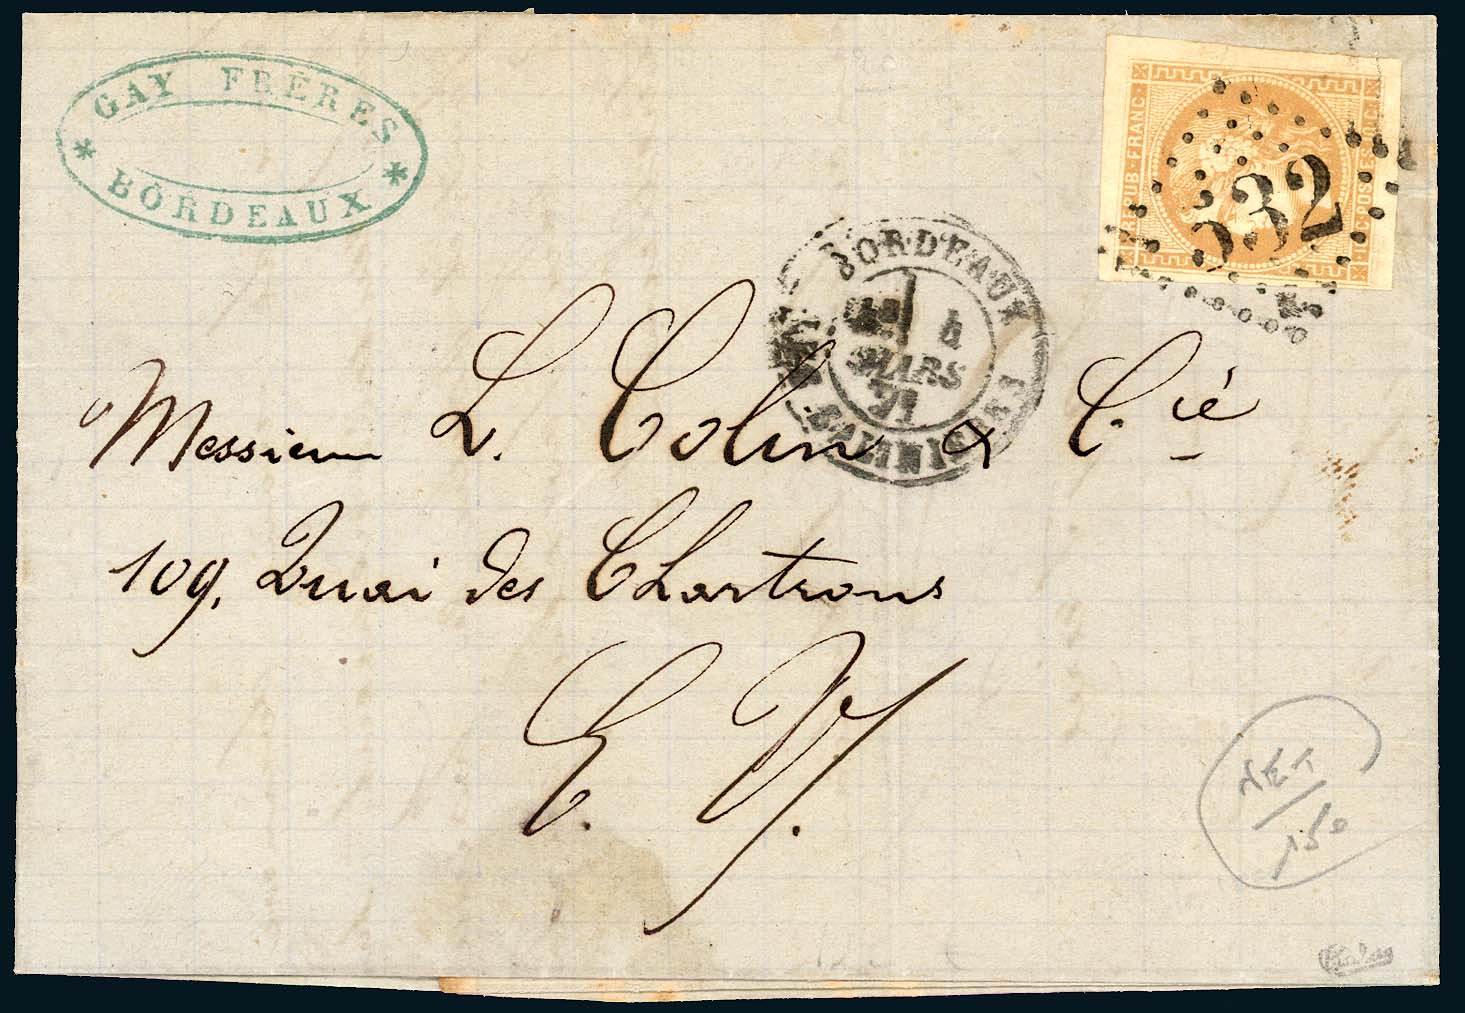 GAY FRÈRES
BORDEAUX
RÉPUB·FRANC·
POSTES
532
BORDEAUX
4
MARS
71
Messieurs L. Colin & C.ié
109, Quai des Chartrons
E. V.
NET
150